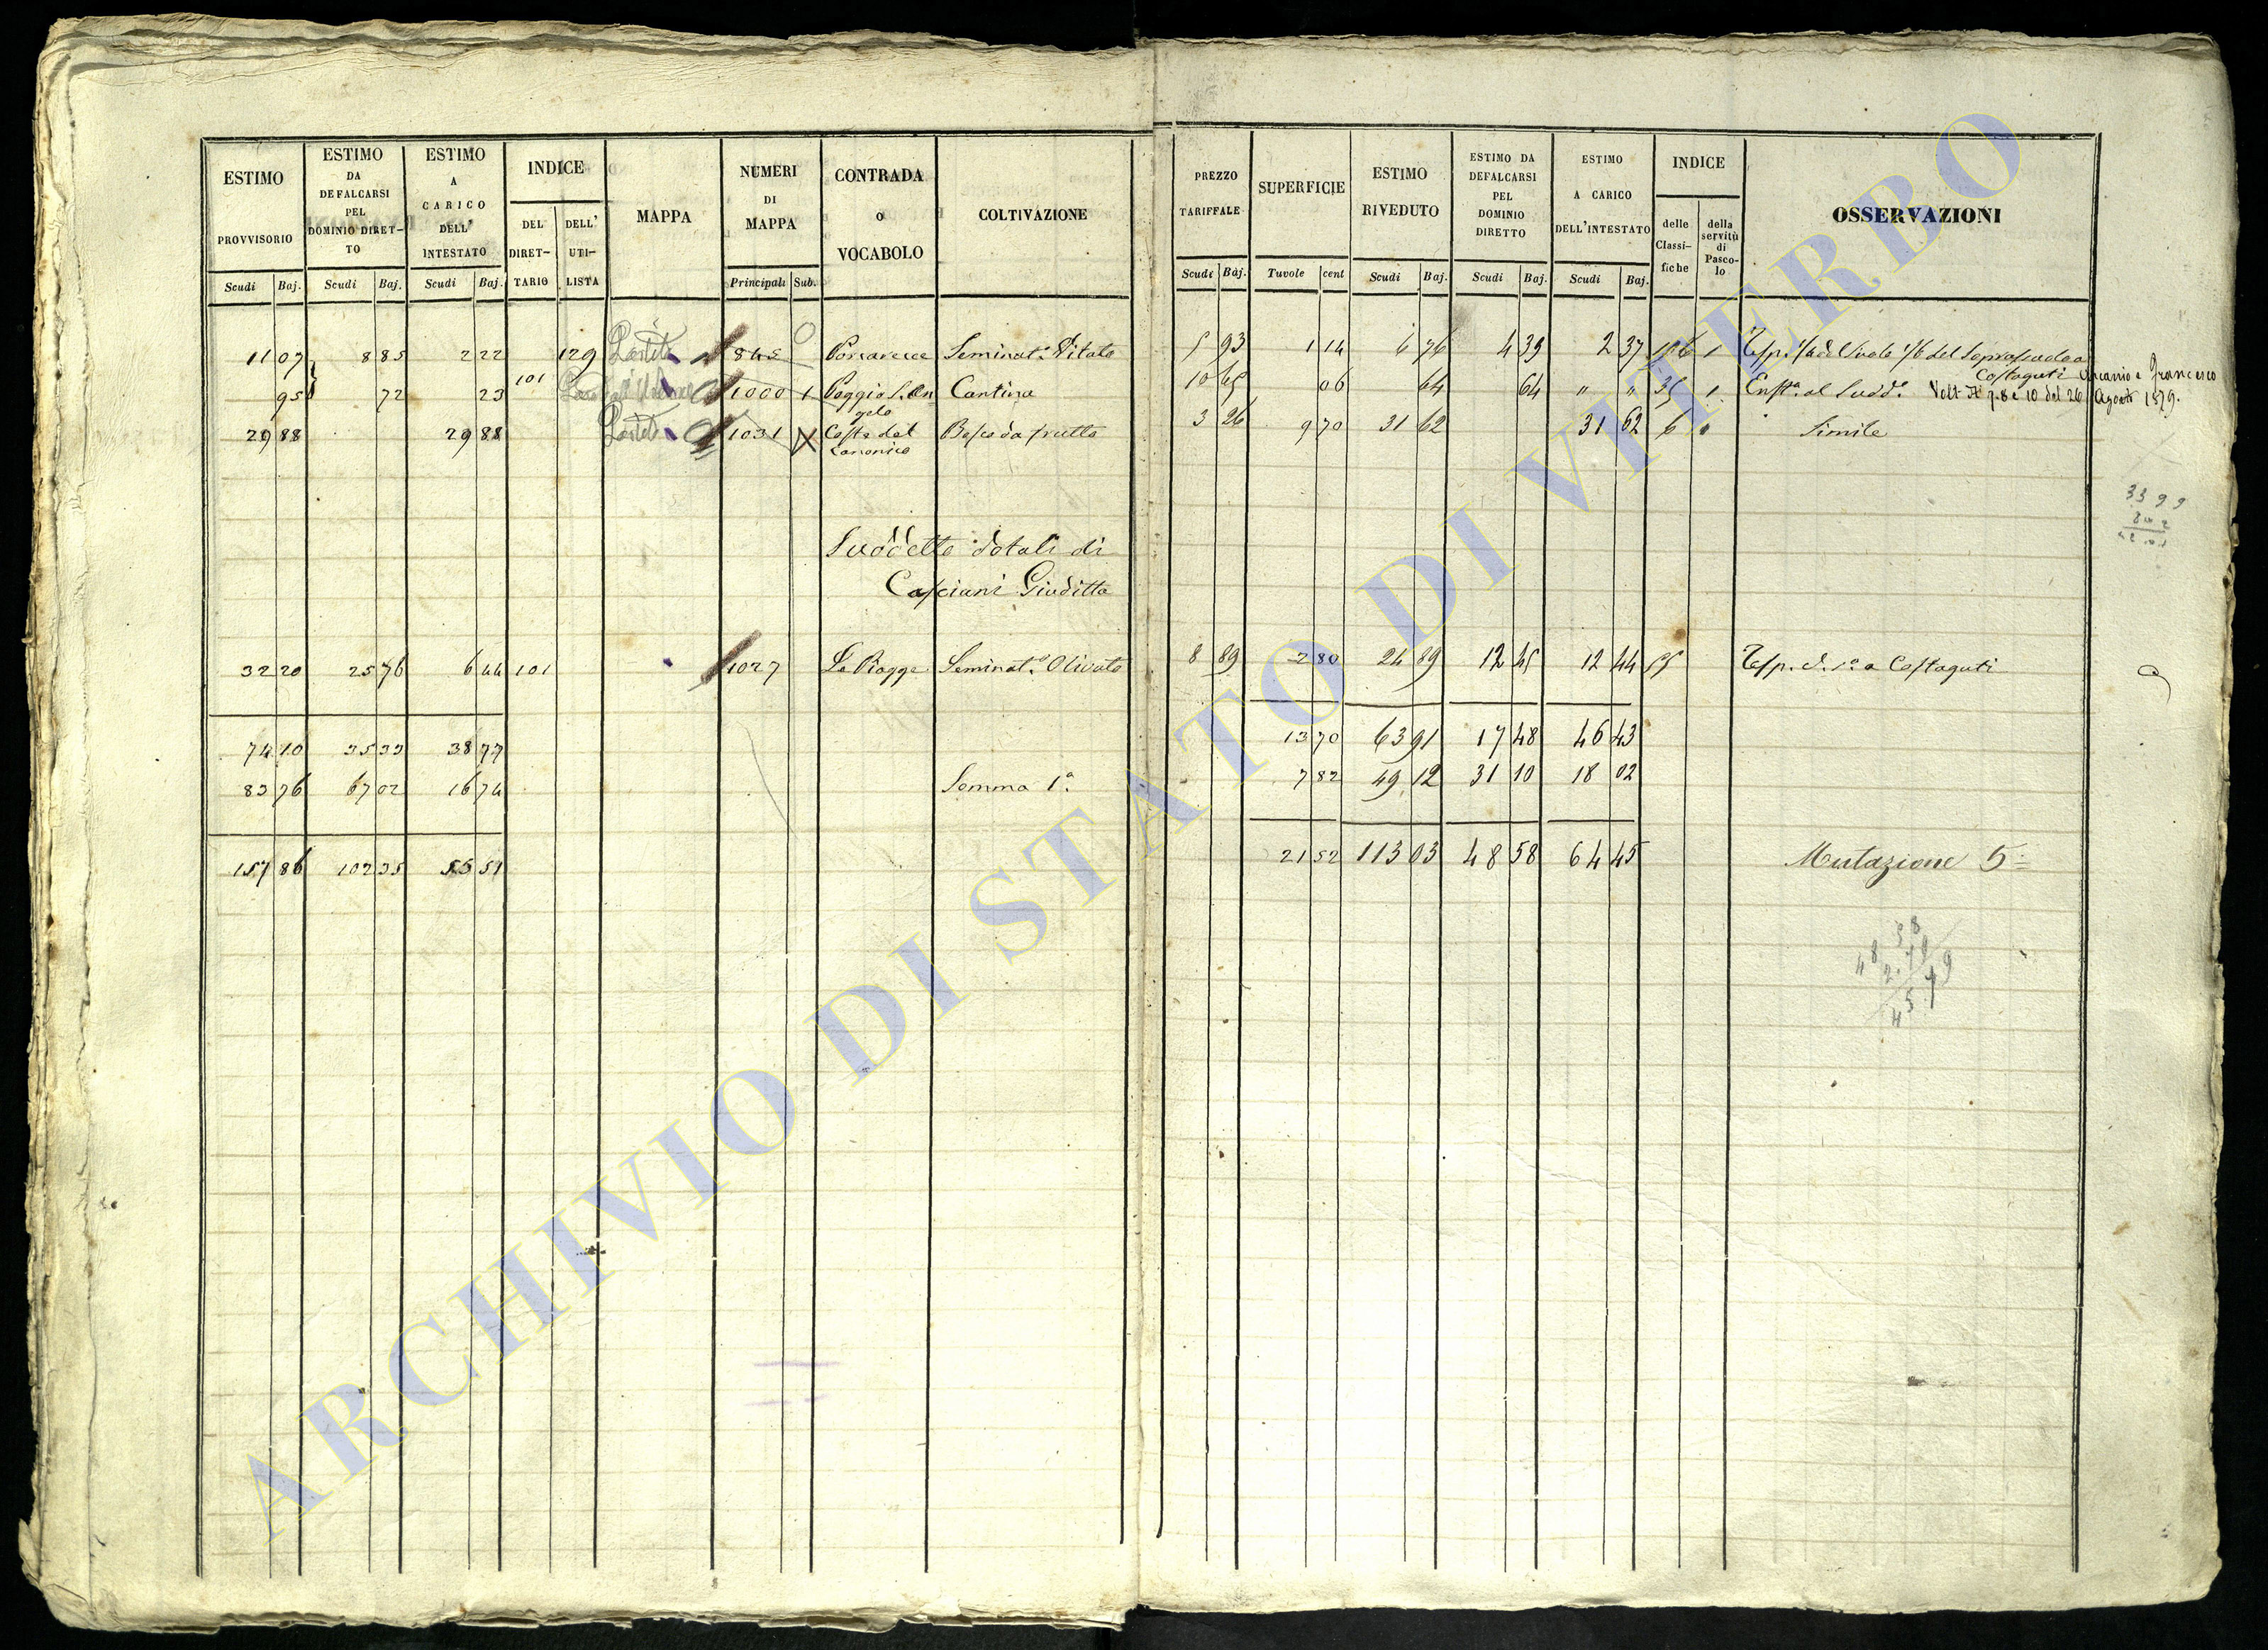 ESTIMO PROVVISORIO
ESTIMO DA DEFALCARSI PEL DOMINIO DIRETTO
ESTIMO A CARICO DELL' INTESTATO
INDICE
DEL DIRETTARIO
DELL' UTILISTA
MAPPA
NUMERI DI MAPPA
CONTRADA O VOCABOLO
COLTIVAZIONE
PREZZO TARIFFALE
SUPERFICIE
ESTIMO RIVEDUTO
ESTIMO DA DEFALCARSI PEL DOMINIO DIRETTO
ESTIMO A CARICO DELL'INTESTATO
INDICE
delle Classifiche
della servitù di Pascolo
OSSERVAZIONI
Scudi Baj. Scudi Baj. Scudi Baj. Principali Sub. Scudi Baj. Tavole cent Scudi Baj. Scudi Baj. Scudi Baj.
11 07 8 85 2 22 129 845 Seminat.o Vitato 5 93 1 14 6 76 4 39 2 37 106 1
Costaguti Ascanio e Francesco
95 72 23 101 1000 1 Poggio S. Angelo Cantina 10 65 06 64 64 " " 35 1 Enft.a al Sudd.o Volt. 7. 8 e 10 del 26 Agosto 1879.
29 88 29 88 1031 Costa del Canonico Bosco da frutto 3 26 9 70 31 62 31 62 6 Simile
3399
Suddetto dotali di
Casciani Giuditta
32 20 25 76 6 44 101 1027 Le Piagge Seminat.o Olivato 8 89 2 80 24 89 12 45 12 44 55 Risp. d. 1.a a Costaguti
74 10 35 33 38 77 13 70 63 91 17 48 46 43
83 76 67 02 16 74 Somma 1.a 7 82 49 12 31 10 18 02
157 86 102 35 55 51 21 52 113 03 48 58 64 45 Mutazione 5.
ARCHIVIO DI STATO DI VITERBO